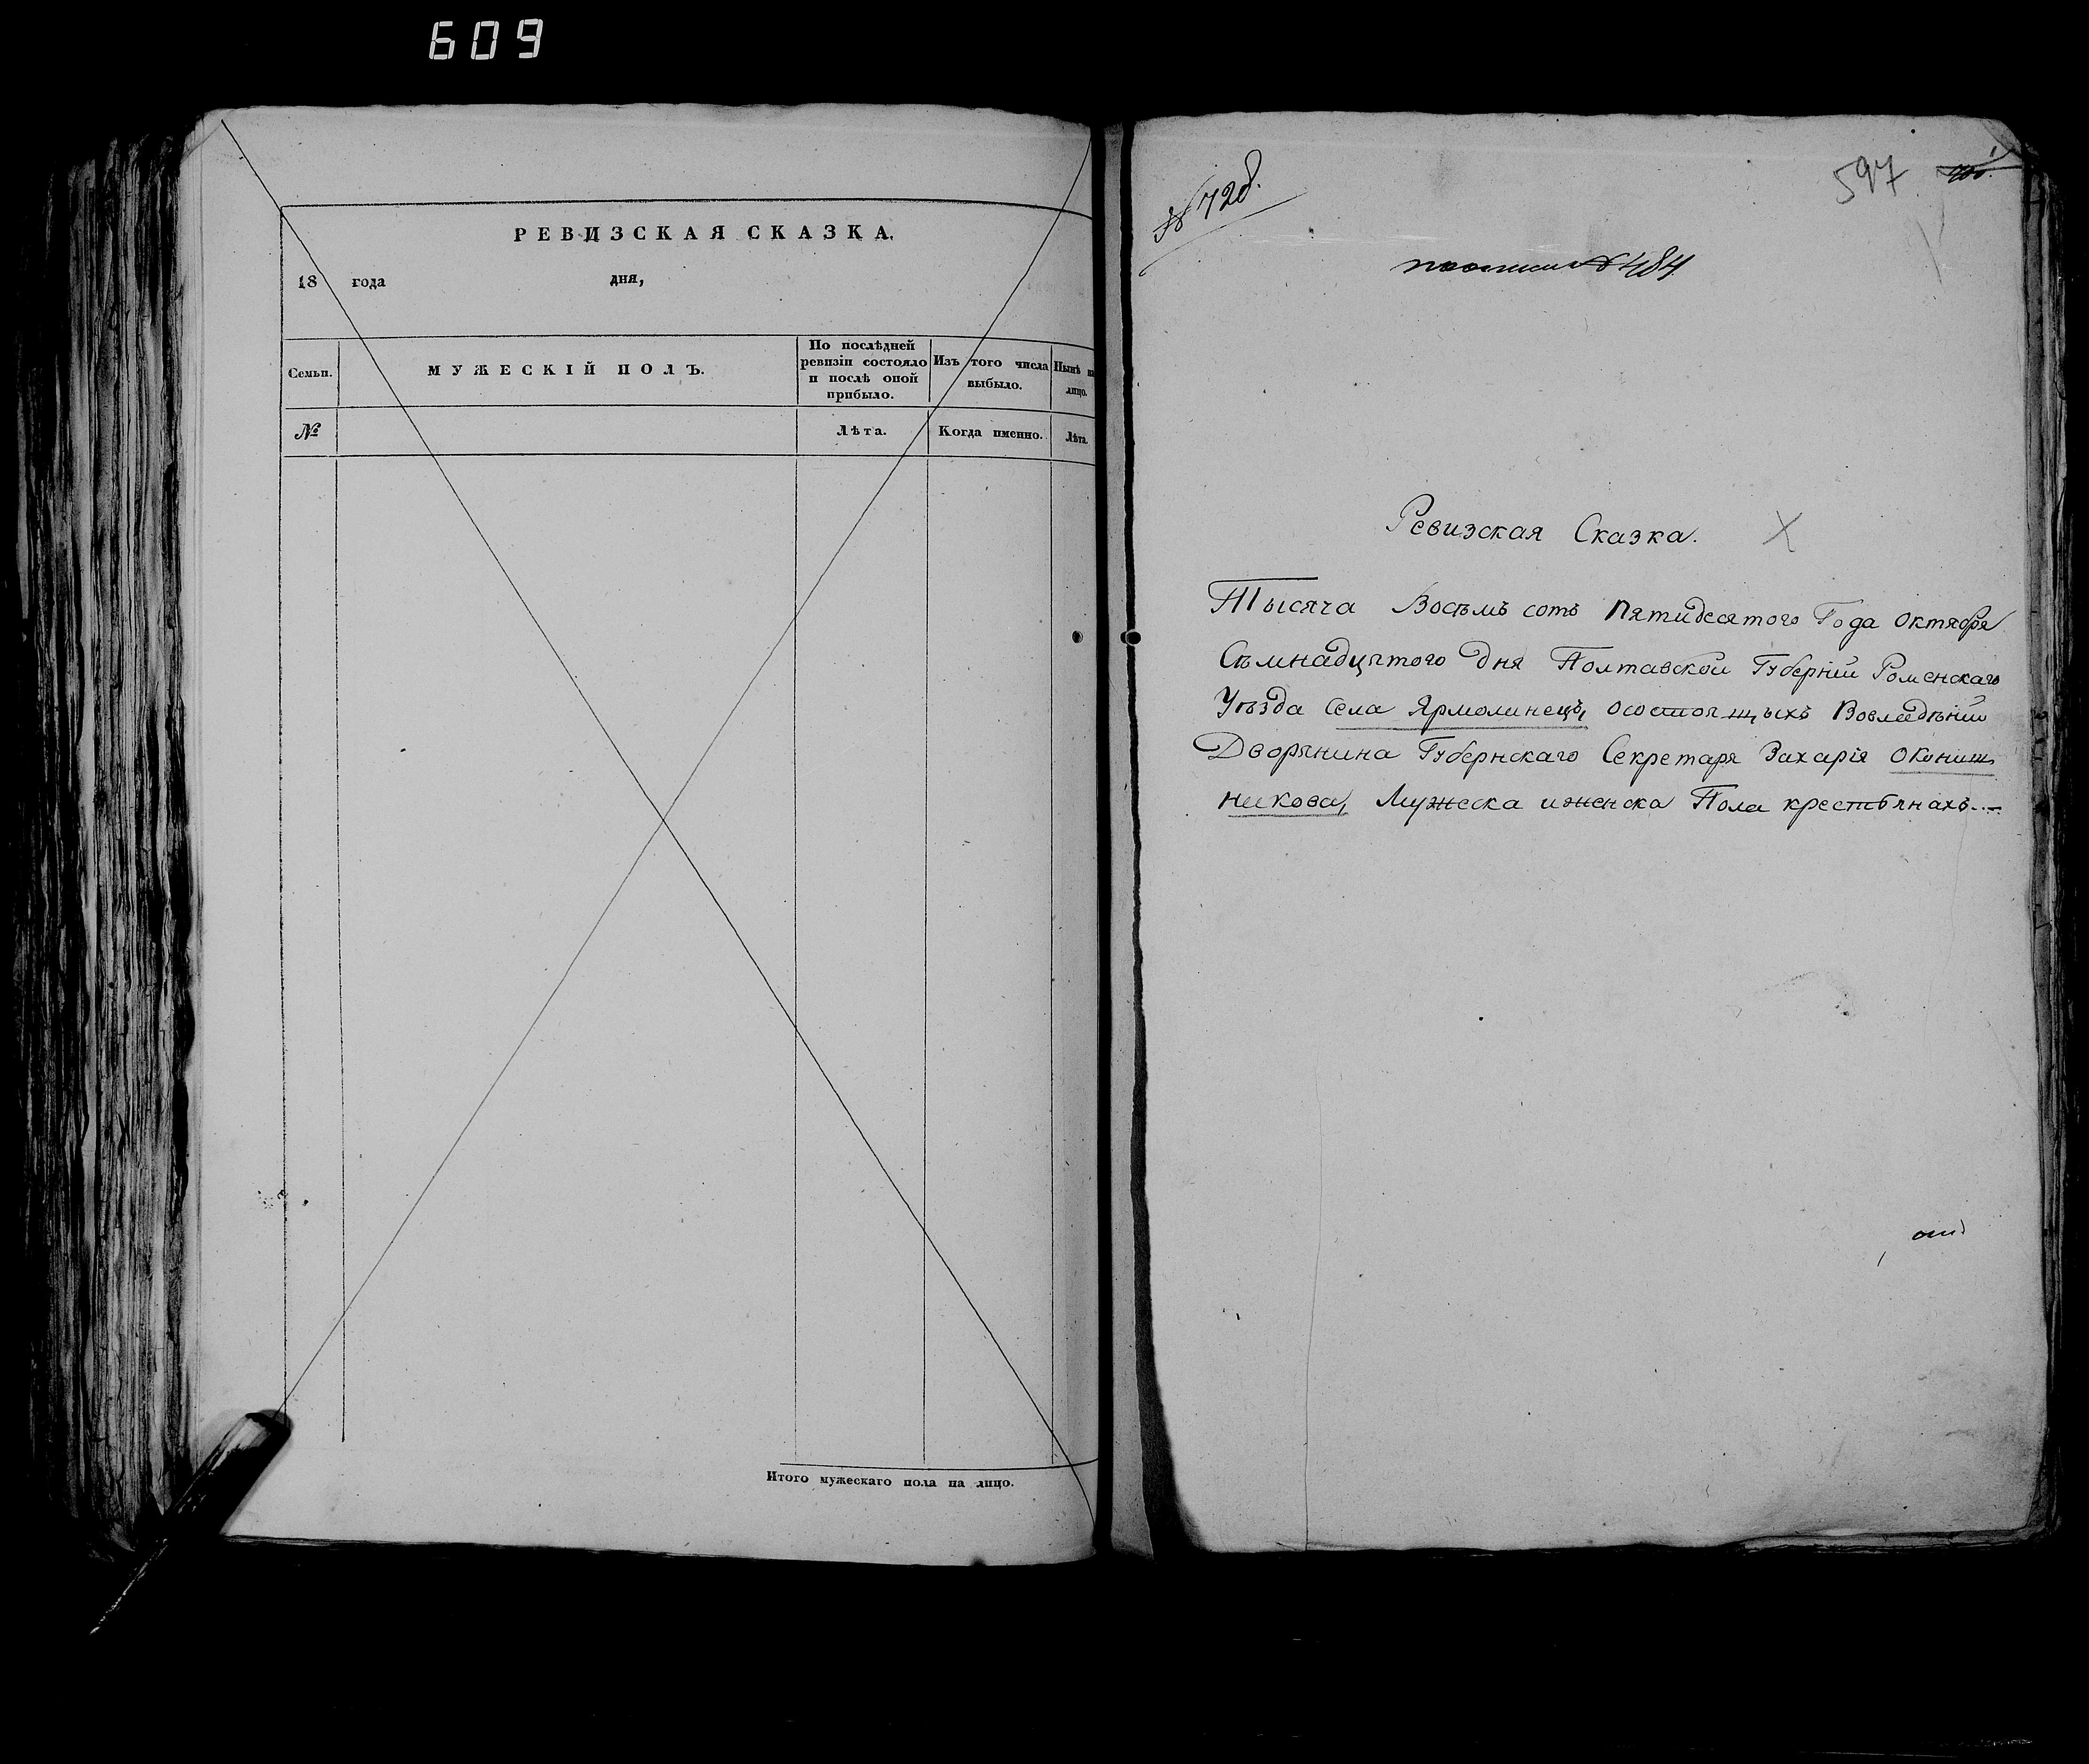 609
РЕВИЗСКАЯ СКАЗКА.
18 года дня,
Семьи.
МУЖЕСКІЙ ПОЛЪ.
По послѣдней
ревизіи состояло
и послѣ оной
прибыло.
Изъ того числа
выбыло.
Нынѣ на
лицо.
№
Лѣта.
Когда именно.
Лѣта.
Итого мужескаго пола на лицо.
597
№ 484
Ревизская Сказка.
Тысяча Восѣмъ сотъ Пятидесятого Года Октября
Сѣмнадцятого Дня Полтавской Губерніи Роменскаго
Уѣзда Села Ярмолинецъ, осостоящыхъ Вовладѣніи
Дворянина Губернскаго Секретаря Захарія Окониш
никова, Мужеска иженска Пола крестьянахъ.—